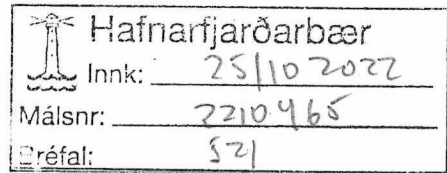 Hafnarfjarðarbær
Innk: 25/10 2022
Málsnr: 2210465
Bréfal: 521